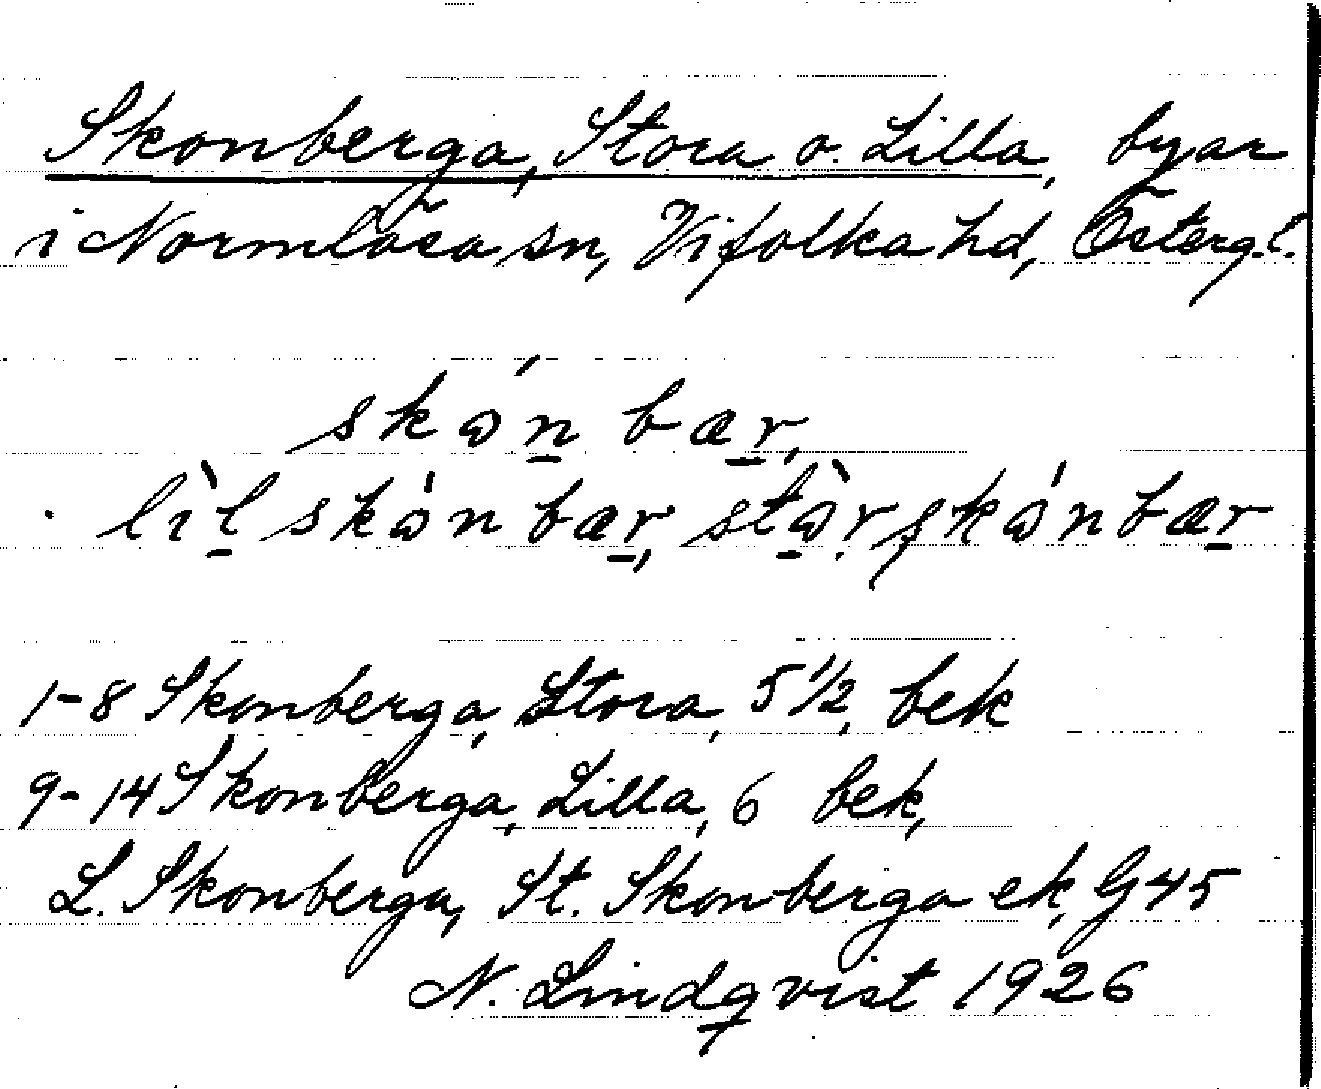 Skonberga, Stora o. Lilla, byar
i Normlösa sn, Vifolka hd, Östergl.
skɷ́n bær,
lìl skɷ́n bær, stɷ̀r skɷ́n bær
1-8 Skonberga, Stora, 5 1/2, bek
9-14 Skonberga, Lilla, 6 bek,
L. Skonberga, St. Skonberga ek, G45
N. Lindqvist 1926